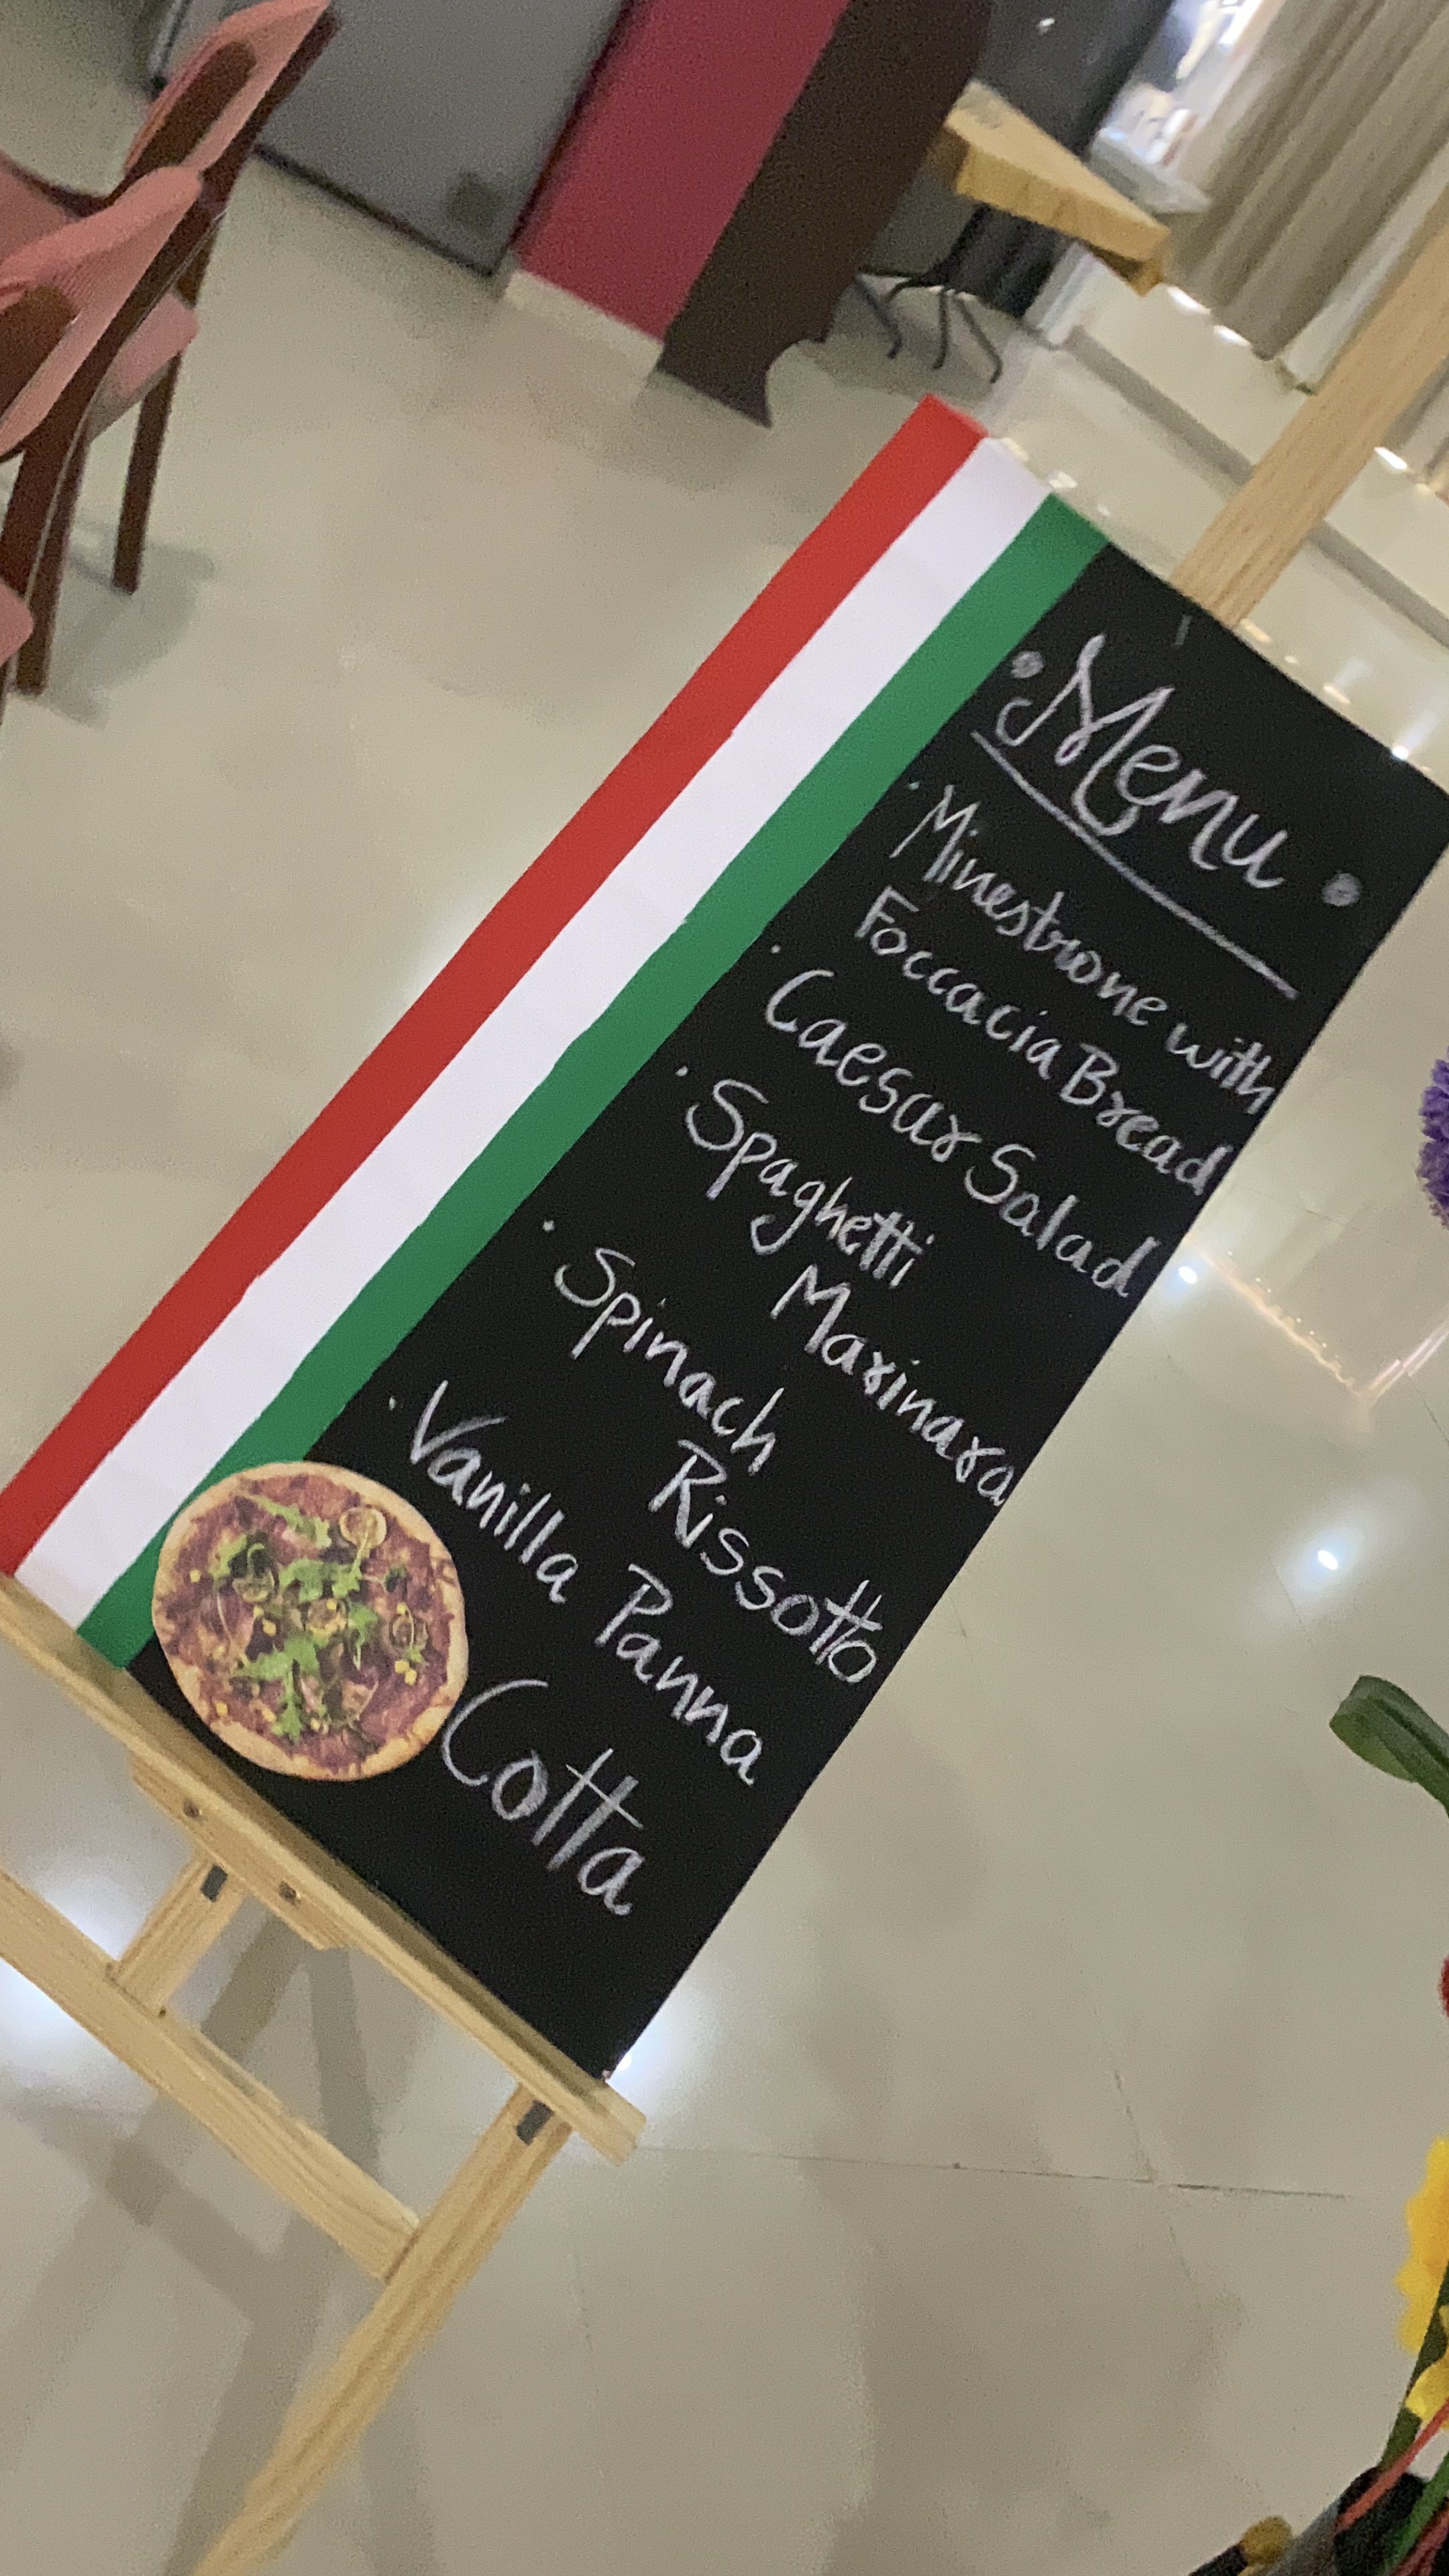 Menu
Minestrone with
Foccacia Bread
Caesar Salad
Spaghetti
Marinara
Spinach
Rissotto
Vanilla Panna
Cotta